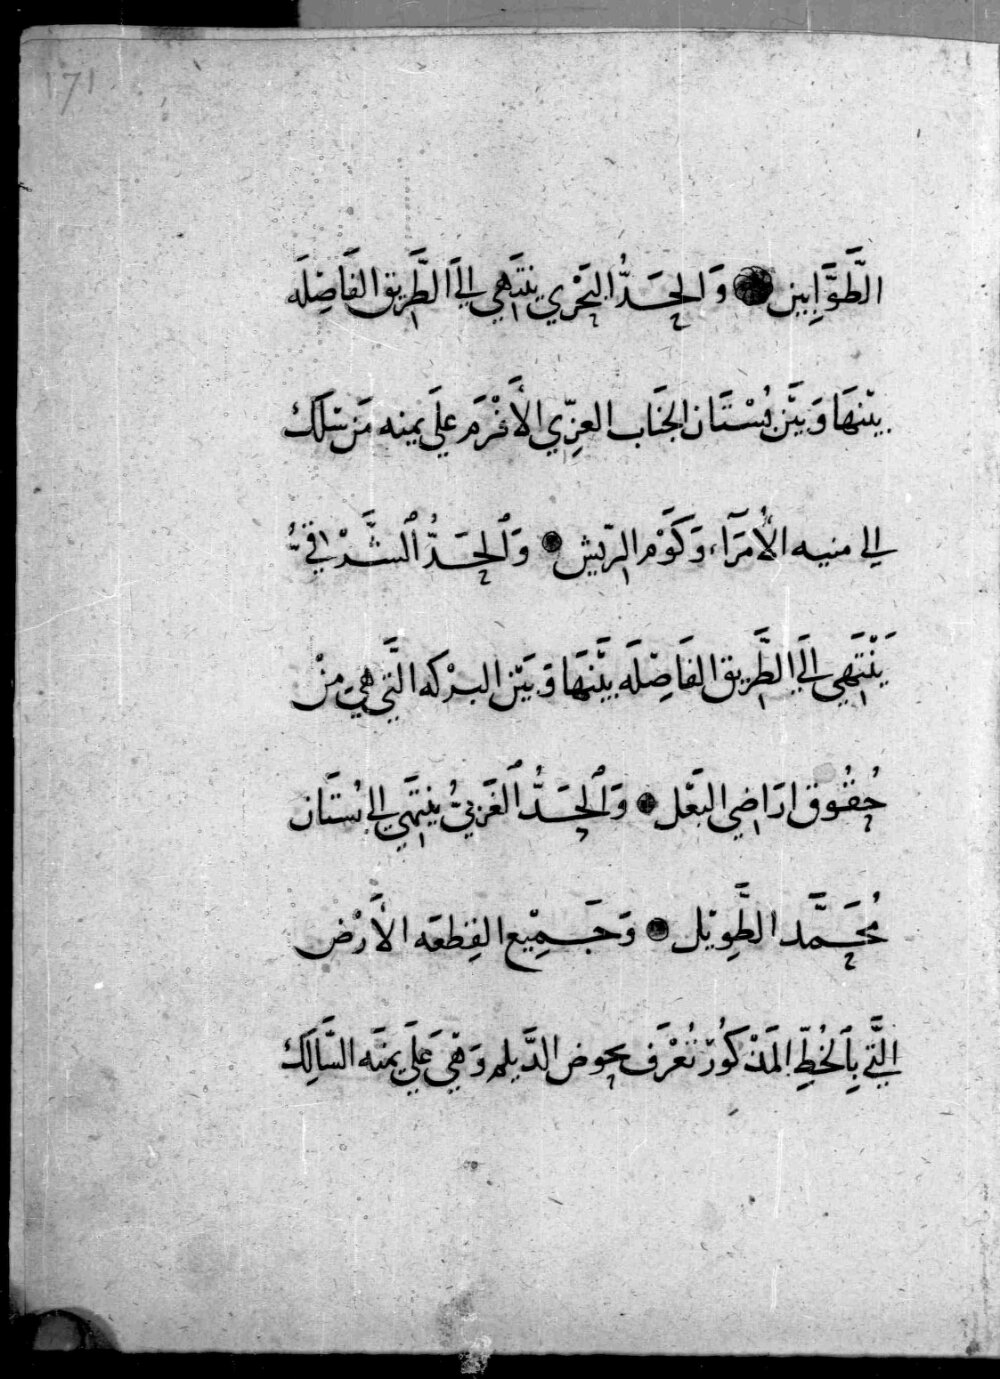 171
الطَّوَّابين وَالحَدُّ البَحْري ينتَهي إلَى الطَّريق الفَاصِلَه
بيْنهَا وَبَيْن بُسْتَان الجَنَاب العِزِّي الأَفْرَم علَى يمنه مَن سَلَك
إلى منيه الأُمَرَآء وَكَوْم الريش وَٱلحَدُّ ٱلشَّرْقيُّ
يَنْتَهِي إلَى الطَّريق الفَاصِلَه بَيْنهَا وَبَيْن البرْكه الَّتي هِيَ منْ
حُقُوق ارَاضي البَعْل وَٱلحَدُّ ٱلغَرْبيُّ ينتَهي إلى بُستَان
مُحَمَّد الطَّوِيْل وَجَمِيْع القِطعَه الأَرْض
الَّتي بِٱلخُطِّ المَذْكُورْ تُعْرَف بحوض الدَّيلم وَهْيَ عَلَى يمنَه السَّالِك